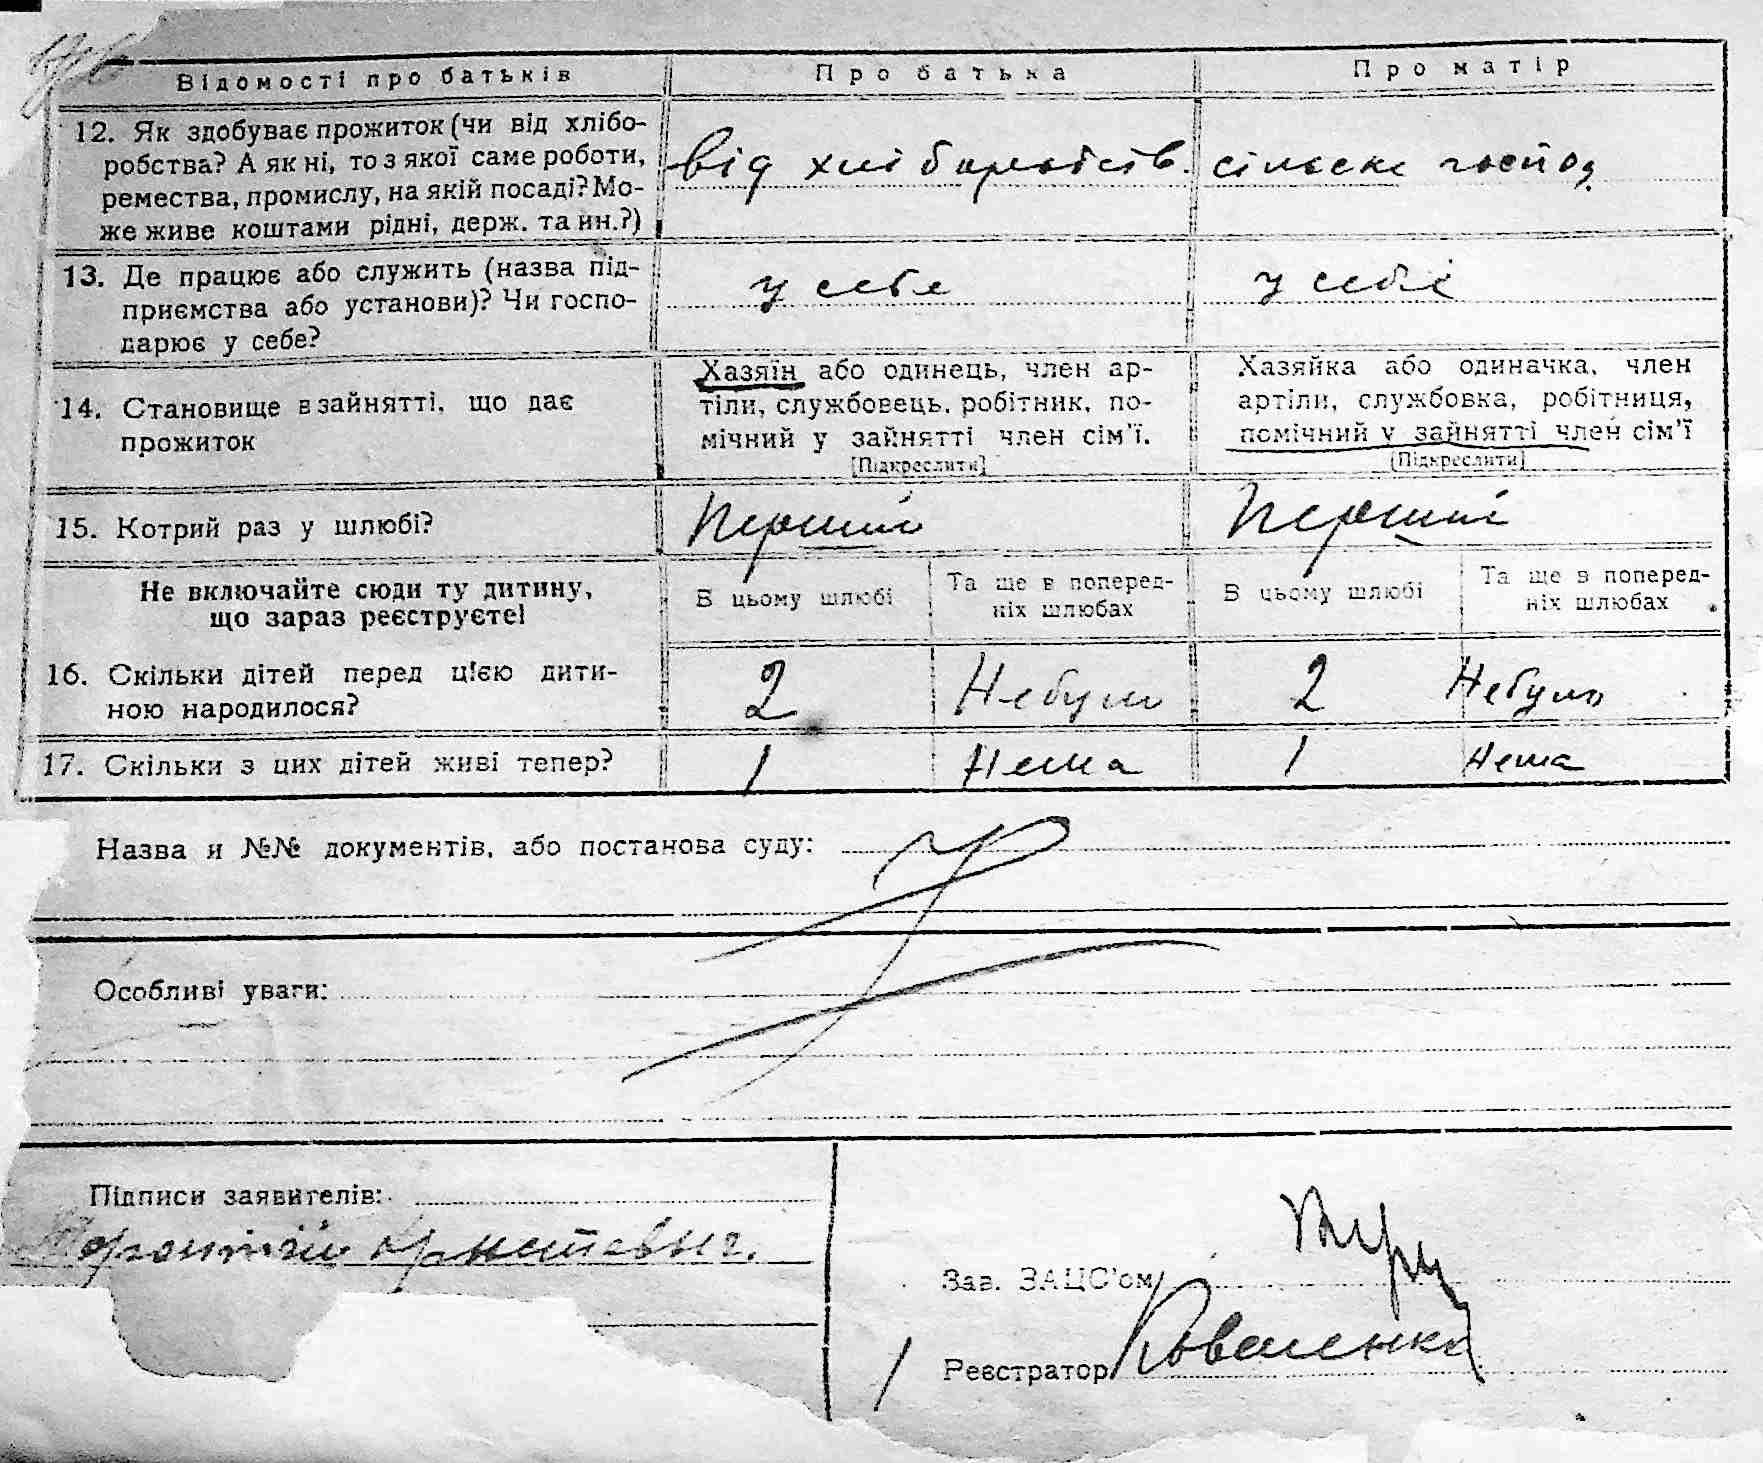 Відомості про батьків Про батька Про матір
12. Як здобуває прожиток (чи від хлібо-
робства? А як ні, то з якої саме роботи,
ремества, промислу, на якій посаді? Мо-
же живе коштами рідні, держ. та ин.?)
від хліборобств. сільське господ
13. Де працює або служить (назва під-
приємства або установи)? Чи госпо-
дарює у себе?
у себе у себе
14. Становище в зайнятті, що дає
прожиток
Хазяїн або одинець, член ар-
тіли, службовець, робітник, по-
мічний у зайнятті член сім'ї.
[Підкреслити]
Хазяйка або одиначка, член
артіли, службовка, робітниця,
помічний у зайнятті член сім'ї
[Підкреслити]
15. Котрий раз у шлюбі? Перший Перший
Не включайте сюди ту дитину,
що зараз реєструєте!
В цьому шлюбі
Та ще в поперед-
ніх шлюбах
В цьому шлюбі
Та ще в поперед-
ніх шлюбах
16. Скільки дітей перед цією дити-
ною народилося?
2 Небуло 2 Небуло
17. Скільки з цих дітей живі тепер? 1 Нема 1 Нема
Назва и №№ документів, або постанова суду:
Особливі уваги:
Підписи заявителів:
Зав. ЗАЦС'ом
Реєстратор Коваленко